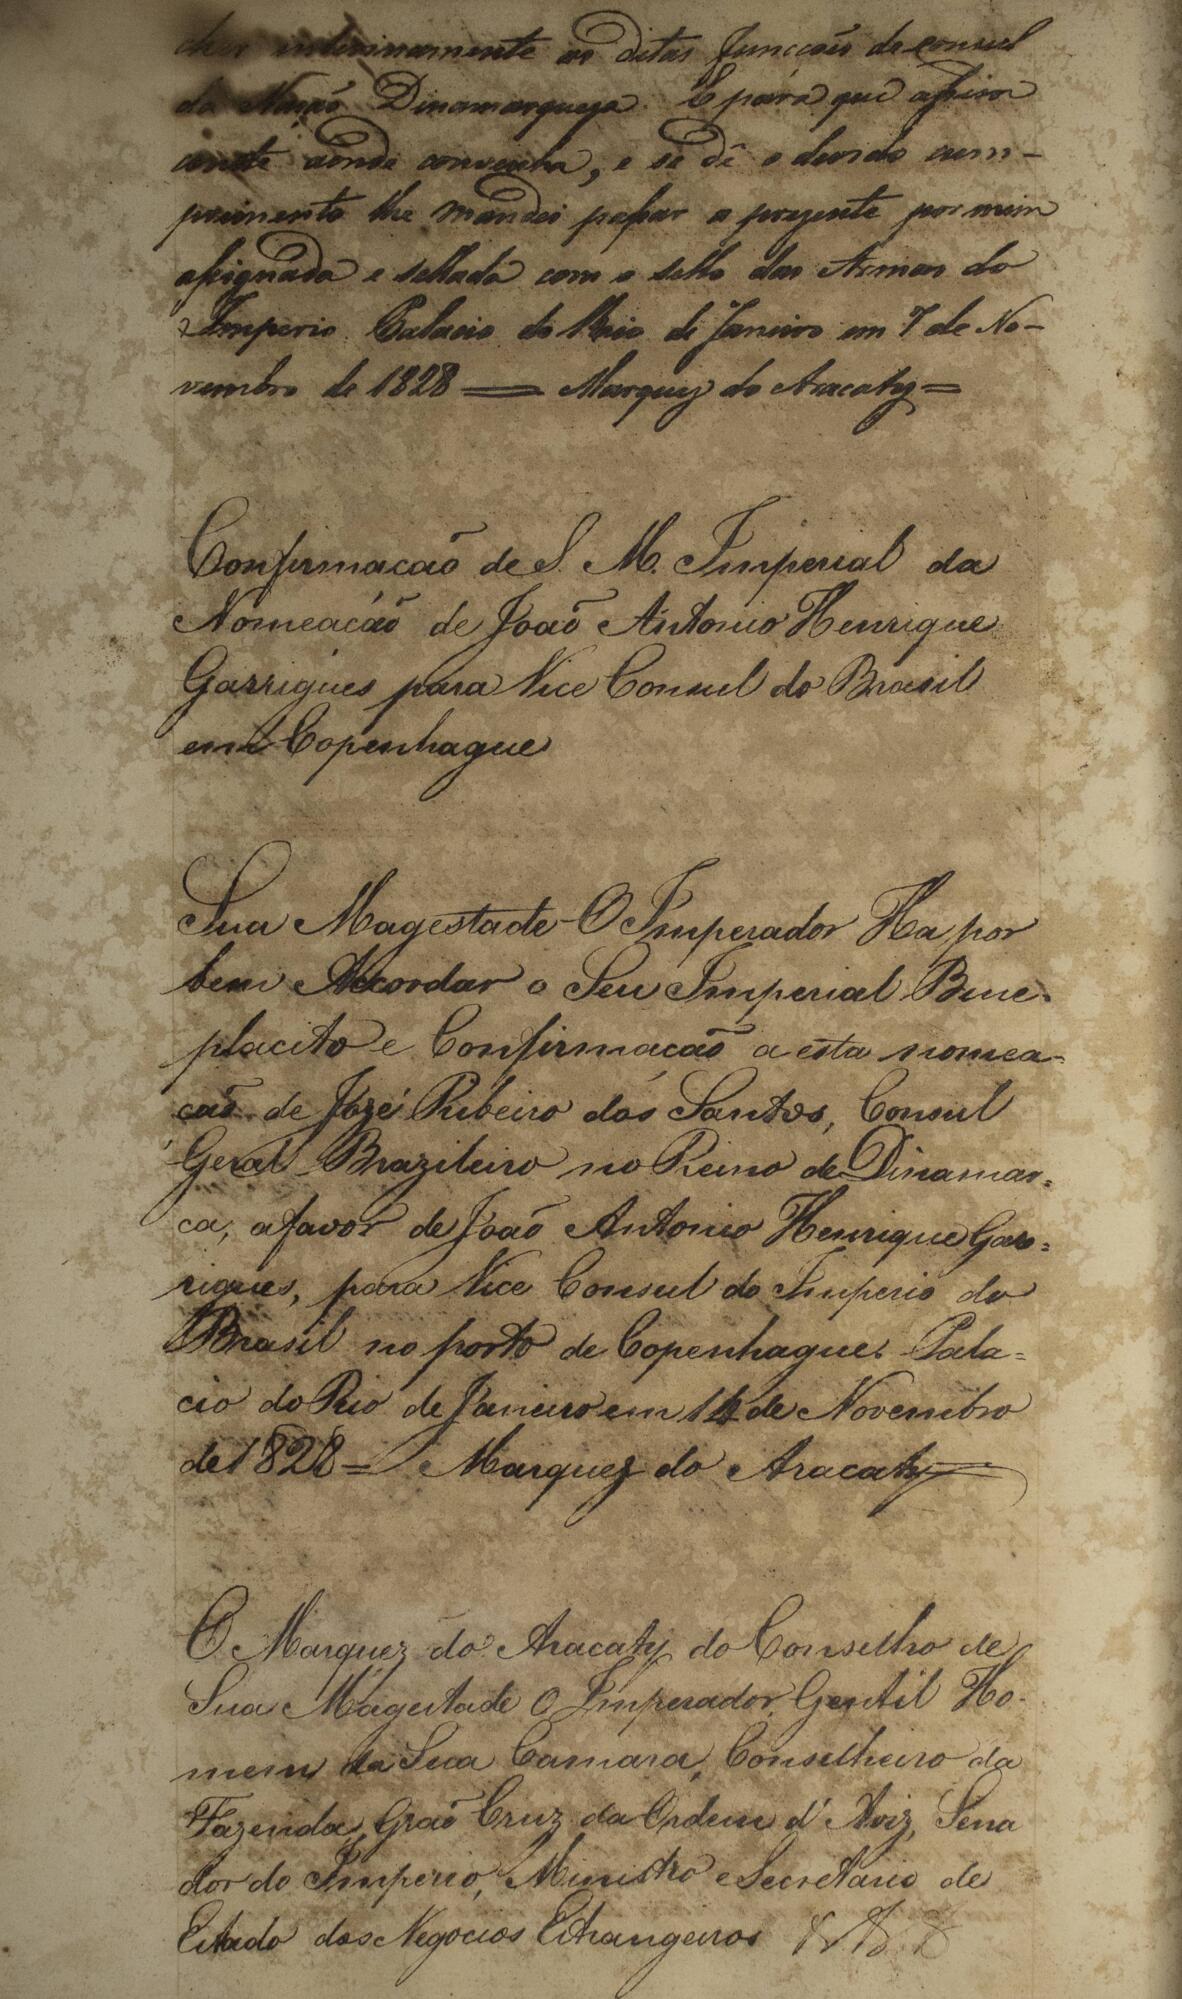 interinamente as ditas funccoẽs de consul
da Nação Dinamarqueza. E para que assim
conste aonde convenha, e se dê o devido cum-
primento lhe mandei passar a prezente por mim
assignada e sellada com o sello das Armas do
Imperio. Palacio do Rio de Janeiro em 7 de No-
vembro de 1828 = Marquez do Aracaty =
Confirmacaõ de S. M. Imperial da
Nomeacáõ de Joaõ Antonio Henrique
Garrigues para Vice Consul do Brasil
em Copenhague
Sua Magestade O Imperador Ha por
bem Accordar o Seu Imperial Bene-
placito e Confirmacaõ a esta nomea-
caõ de Jozé Ribeiro dos Santos, Consul
Geral Brazileiro no Reino de Dinamar=
ca, a favor de Joaõ Antonio Henrique Gar=
rigues, para Vice Consul do Imperio do
Brasil no porto de Copenhague. Pala=
cio do Rio de Janeiro em 14 de Novembro
de 1828 = Marquez do Aracaty
O Marquez do Aracaty do Conselho de
Sua Magestade O Imperador, Gentil Ho-
mem da Sua Camara, Conselheiro da
Fazenda, Graõ Cruz da Ordem d'Aviz, Sena
dor do Imperio, Ministro e Secretario de
Estado dos Negocios Estrangeiros